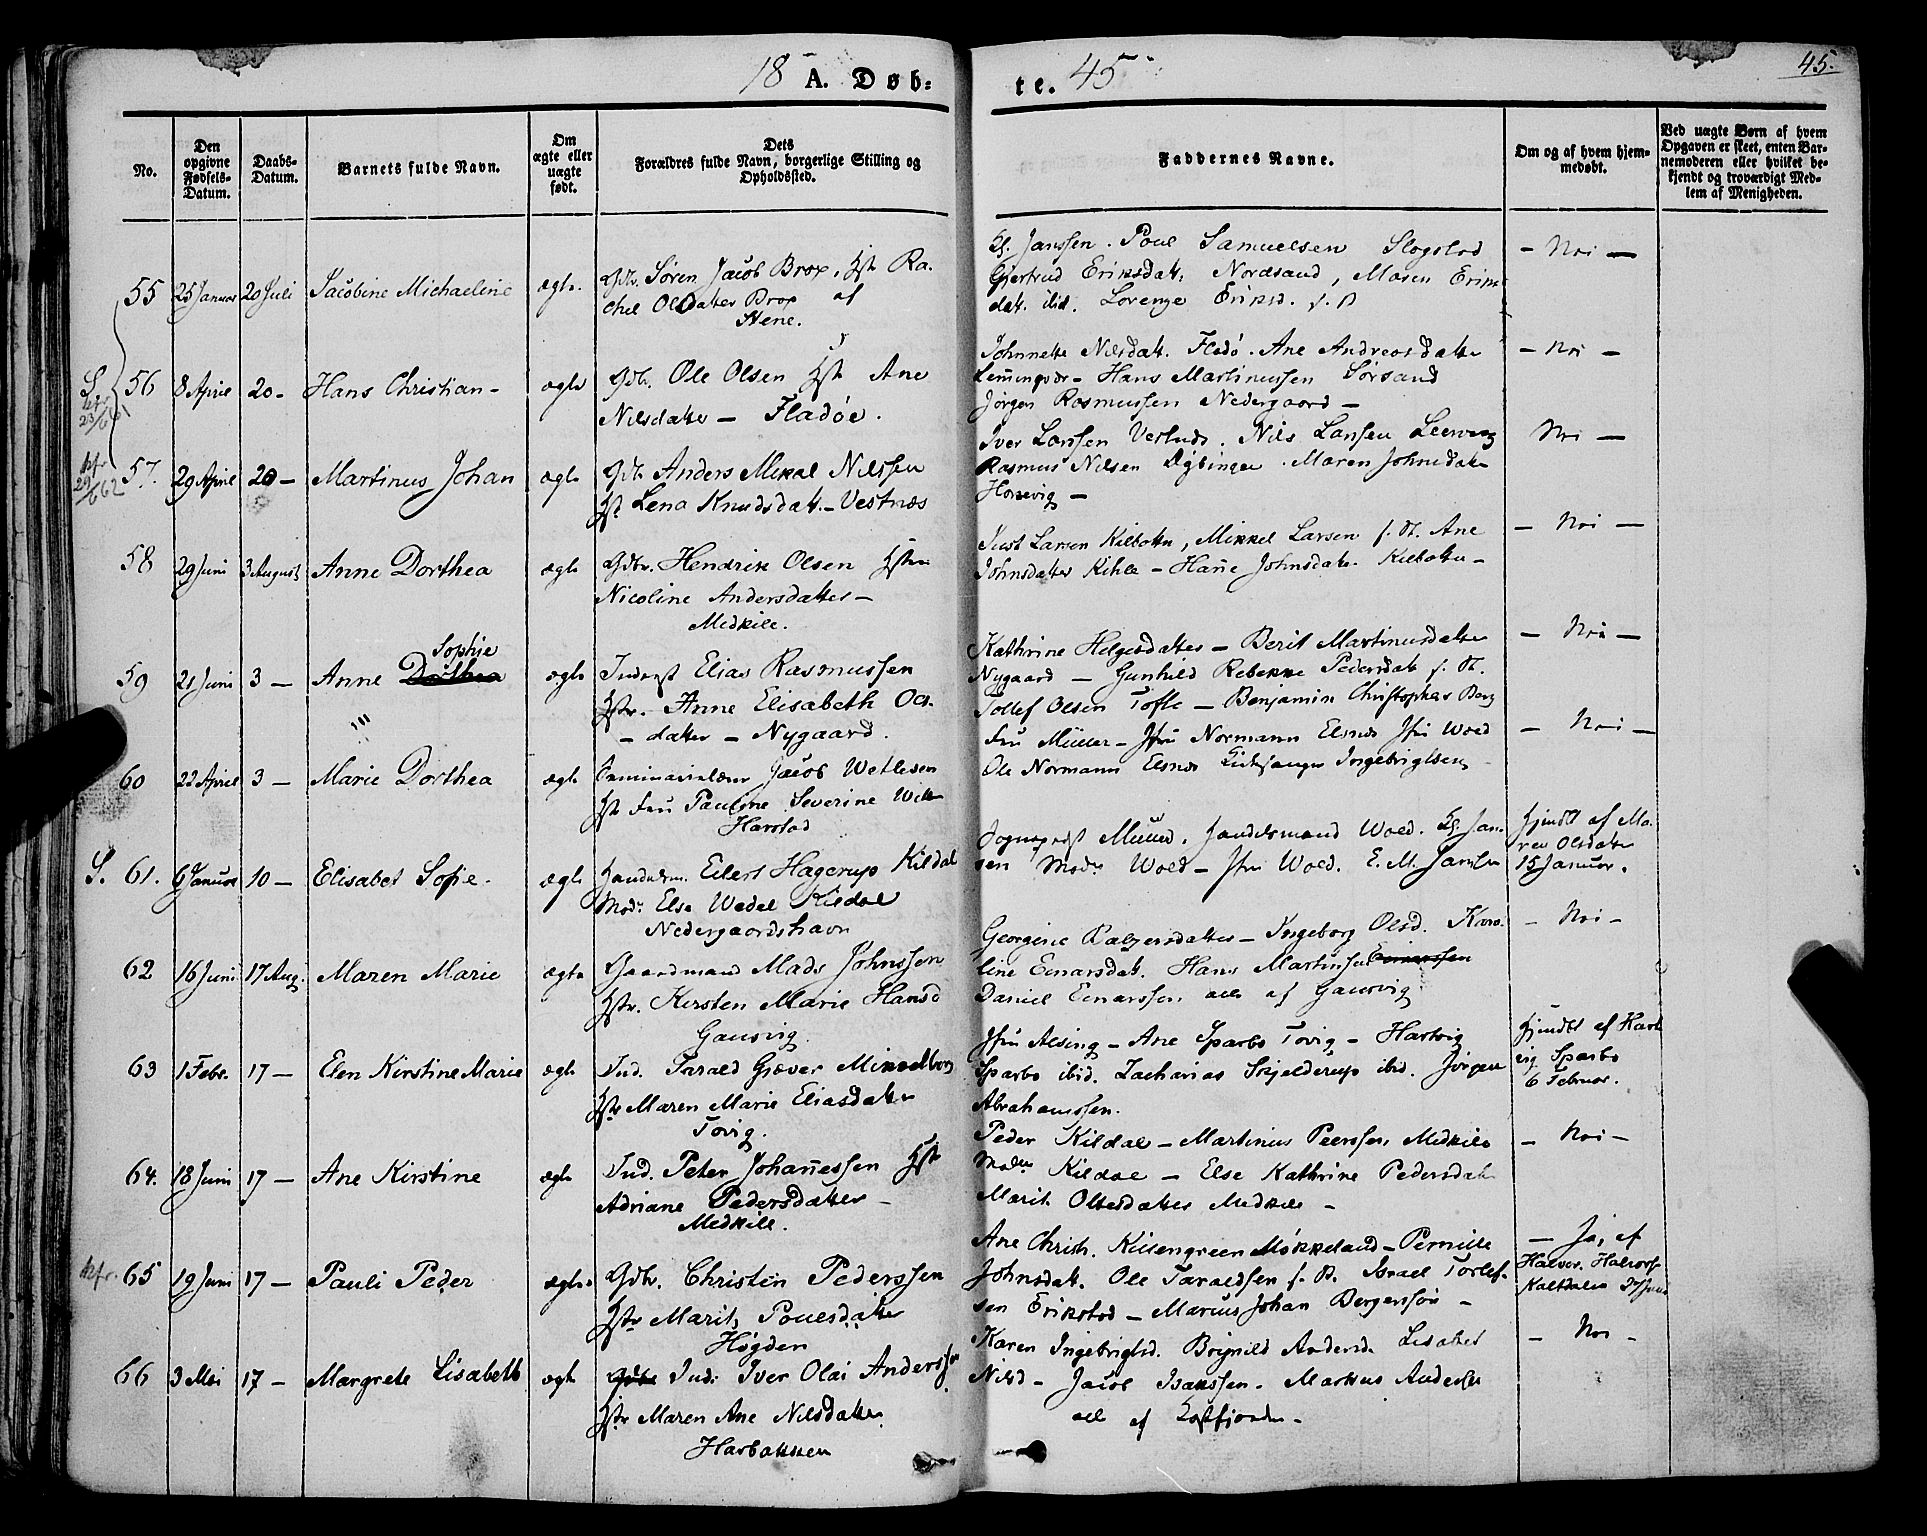 18 A. Døb: te. 45
45.
No.
Den opgivne Fødsels-Datum.
Daabs-Datum.
Barnets fulde Navn.
Om ægte eller uægte født.
Dets Forældres fulde Navn, borgerlige Stilling og Opholdssted.
Faddernes Navne.
Om og af hvem hjemmedøbt.
Ved uægte Børn af hvem Opgaven er skeet, enten Barnemoderen eller hvilket bekjendt og troværdigt Medlem af Menigheden.
55 25 Januar 20 Juli Jacobine Michaeline ægte.
Gdbr. Søren Jacob Brox, Hst. Ra-
chel Olsdatter Brox af
Stene.
Kl. Janssen. Poul Samuelsen Slogstad
Gjertrud Eriksdatt. Nordsand, Maren Eriks-
datt. ibid. Lorenze Eriksd.
– Nei –
56 8 April 20 – Hans Christian – ægte
Gdbr. Ole Olsen Hst. Ane
Nilsdatter – Fladøe.
Johnnette Nilsdatt. Fladø. Ane Andreasdatter
Lemmingvær – Hans Martinussen Sørsand
Jørgen Rasmussen Nedergaard –
– Nei –
57. 29 April 20 – Martinus Johan ægte
Gdbr Anders Mikal Nilssen
Hst. Lena Knudsdatt. – Vestnæs
Iver Larssen Vestnæs. Nils Larsen
Rasmus Nilsen. Maren Johnsdatter
– Nei –
58 29 Juni 3 August Anne Dorthea ægte
Gdbr. Hendrik Olsen Hstr.
Nicoline Andersdatter –
Medkile.
Just Larsen Kilbotn, Mikkel Larsen s. St. Ane
Johnsdatter Kihle – Hane Johnsdatt. Kilbotn –
– Nei –
59 21 Juni 3 – Anne Dorthea Sophie ægte
Inderst Elias Rasmussen
Hstr. Anne Elisabeth Ols-
– datter – Nygaard.
Kathrine Helgesdatter – Berit Martinusdatter
Nygaard – Gunhild Rebekke Pedersdatt s. St.
Tollef Olsen Tofte – Benjamin Christophersen Berg
– Nei –
60 22 April 3 – Marie Dorthea ægte
Seminarielærer Jacob Wetlesen
Hst Fru Pauline Severine Wetl.
Harstad
Fru Müller – Jfru Normann Elsnes Jfru Wold
Ole Normann Elsnes Kirkesanger Ingebrigtsen
– Nei –
S. 61. 6 Januar 10 – Elisabet Sofie. ægte
Handelsm. Eilert Hagerup Kildal
Mad: Else Wedel Kildal
Nedergaardshavn
Sogneprest Müller, Handelsmand Wold. Kl. Jan-
sen Mad. Wold – Jfru Wold. E. M. Jansen
Hjemdt af Ma-
ren Olsdatter
15 Januar.
62 16 Juni 17 Aug. Maren Marie ægte
Gaardmand Mads Johnssen
Hstr. Kirsten Marie Hansd
Gausvig.
Georgine Balzersdatter – Ingeborg Olsd. Karo-
line Einarsdatt. Hans Martinsen Einarssen
Daniel Einarssen alle af Gausvig
– Nei –
63 1 Febr. 17 – Elen Kirstine Marie ægte
Ind. Tarald Gjæver Mikkelborg
Hstr Maren Marie Eliasdatter
Tovig.
Jfru Alsing – Ane Sparbo Tovig – Hartvig
Sparbo ibid. Zacharias Skjelderup ibid. Jørgen
Abrahamssen.
Hjemdt af Hart-
vig Sparbo
6 Februar.
64. 18 Juni 17 – Ane Kirstine ægte
Ind. Peter Johannessen Hst
Adriane Pedersdatter –
Medkile.
Peder Kildal – Martinus Peerssen Medkile
Mad. Kildal – Else Kathrine Pedersdatt
Marit Oltesdatter Medkile –
– Nei –
kfr. 65 19 Juni 17 – Pauli Peder ægte
Gdbr. Christen Pederssen
Hstr Marit Pouelsdatter
Høgden
Ane Christ. Killengreen Møkkeland – Pernille
Johnsdatt. Ole Taraldsen s. St. Israel Torlef-
sen Erikstad – Marius Johan Bergersson –
– Ja, af
Halvor Halvors.
Kaltdalen
66 3 Mai 17 – Margrete Lisabeth ægte
Gdbr Ind: Iver Olai Anderss
Hstr Maren Ane Nilsdatter
Harbakken
Karen Ingebrigtsd. Brynild Andersd. Lisabet
Nilsd – Jacob Isakssen – Markus Anderss
alle af
– Nei –